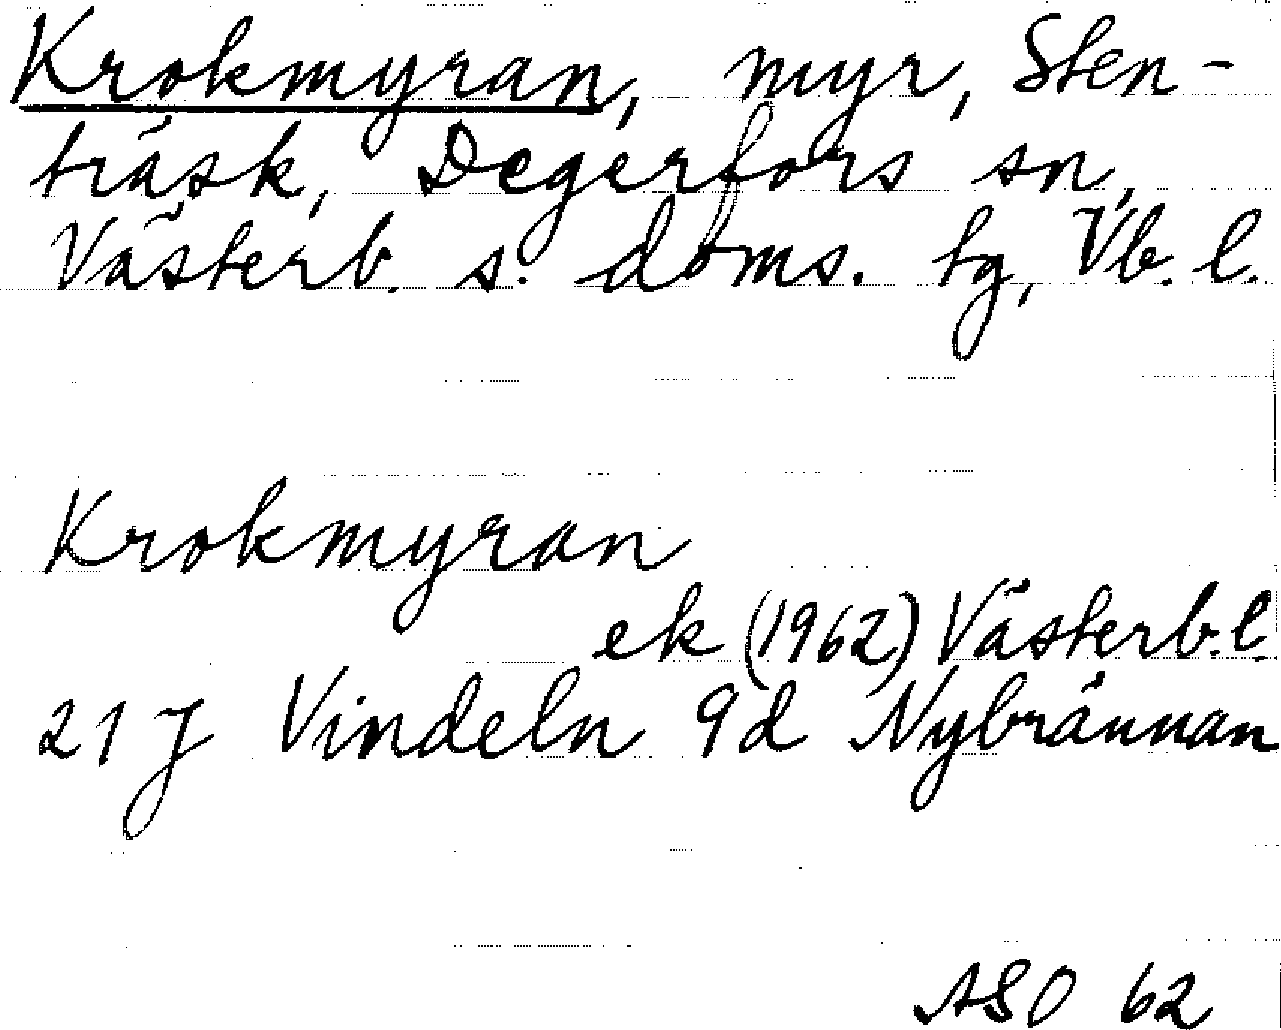 Krokmyran, myr, Sten-
träsk, Degerfors sn,
Västerb. s. doms. tg, Vb. l.
Krokmyran
ek (1962) Västerb. l.
21 J Vindeln 9d Nybrännan
ASO 62